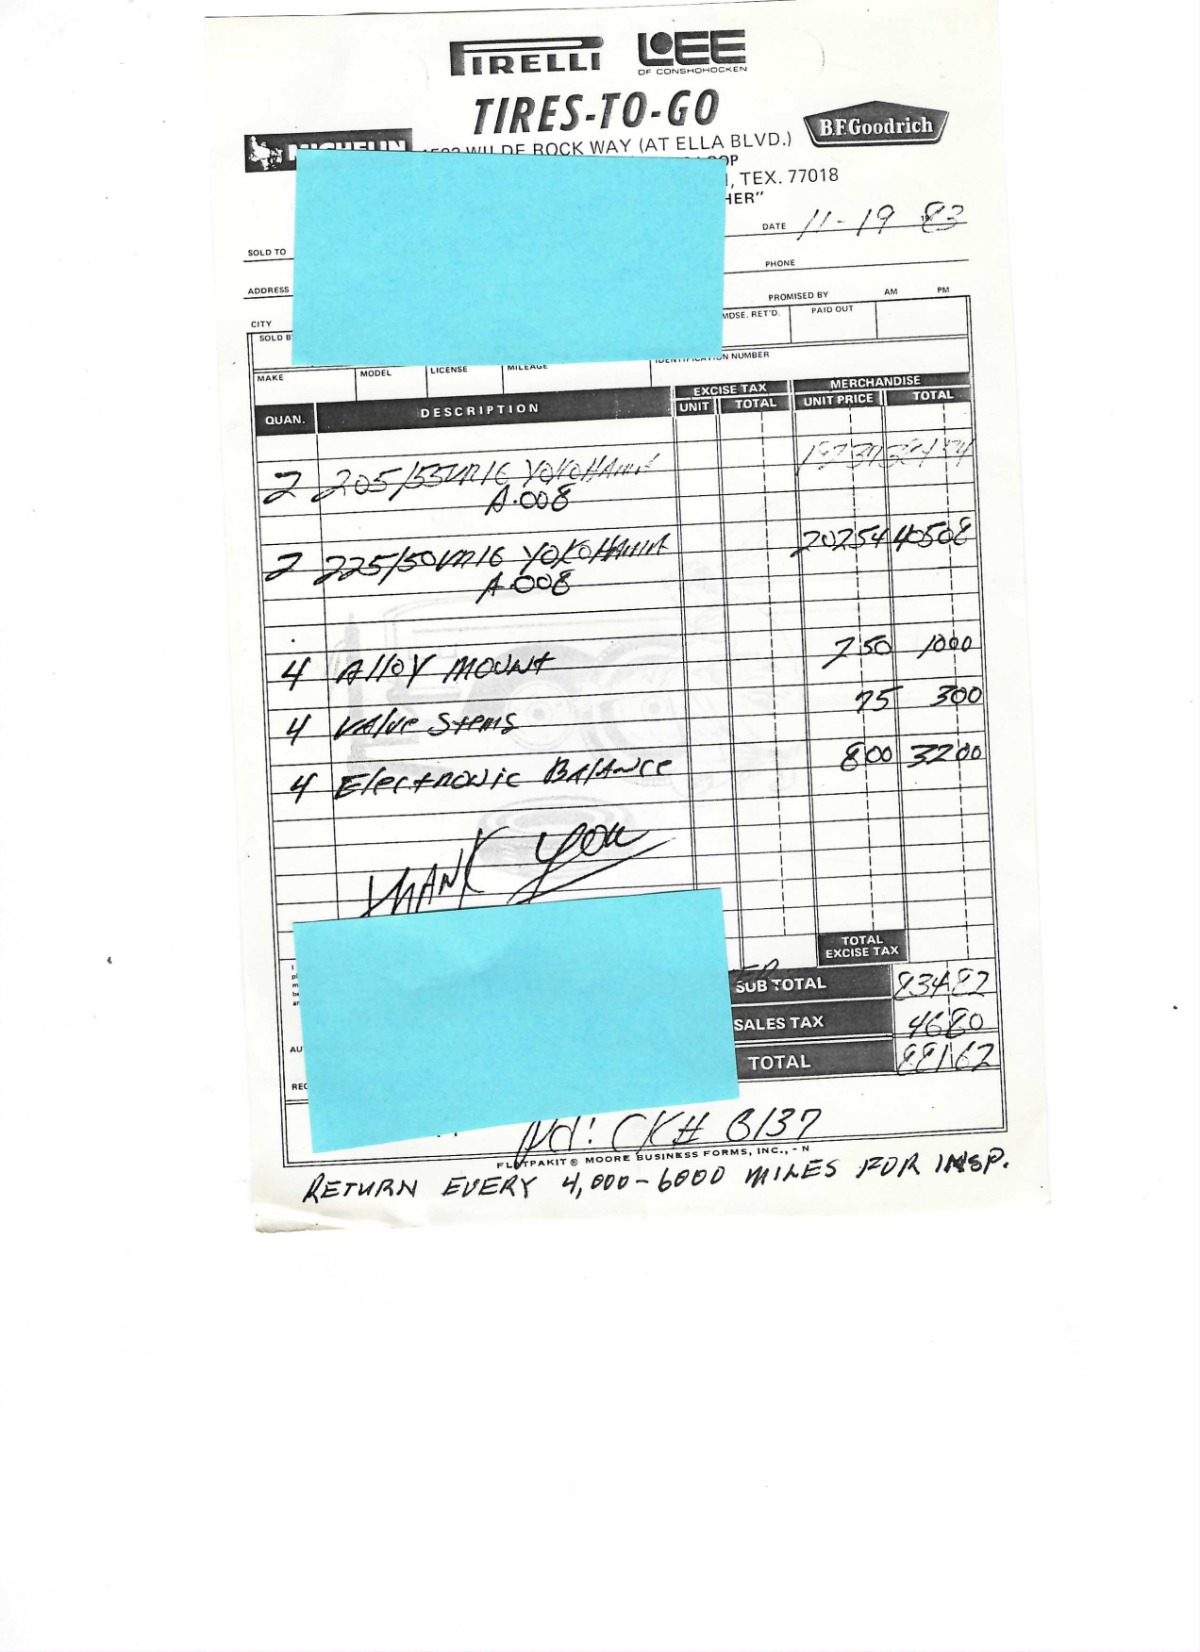 PIRELLI LEE
OF CONSHOHOCKEN
TIRES-TO-GO
MICHELIN B.F.Goodrich
WILDE ROCK WAY (AT ELLA BLVD.)
OP
, TEX. 77018
HER"
DATE 11-19 83
SOLD TO
PHONE
ADDRESS
PROMISED BY AM PM
CITY
SOLD B MDSE. RET'D. PAID OUT
MAKE MODEL LICENSE MILEAGE IDENTIFICATION NUMBER
QUAN. DESCRIPTION EXCISE TAX MERCHANDISE
UNIT TOTAL UNIT PRICE TOTAL
2 205/55VR16 YOKOHAMA
A.008
2 225/50VR16 YOKOHAMA 202 54 405 08
A.008
4 Alloy Mount 2 50 10 00
4 Valve Stems 75 3 00
4 Electronic Balance 8 00 32 00
THANK You
TOTAL
EXCISE TAX
SUB TOTAL 834 82
SALES TAX 46 80
AU
TOTAL 881 62
REC
Pd! CK# 8137
FLATPAKIT ® MOORE BUSINESS FORMS, INC., - N
RETURN EVERY 4,000-6000 MILES FOR INSP.